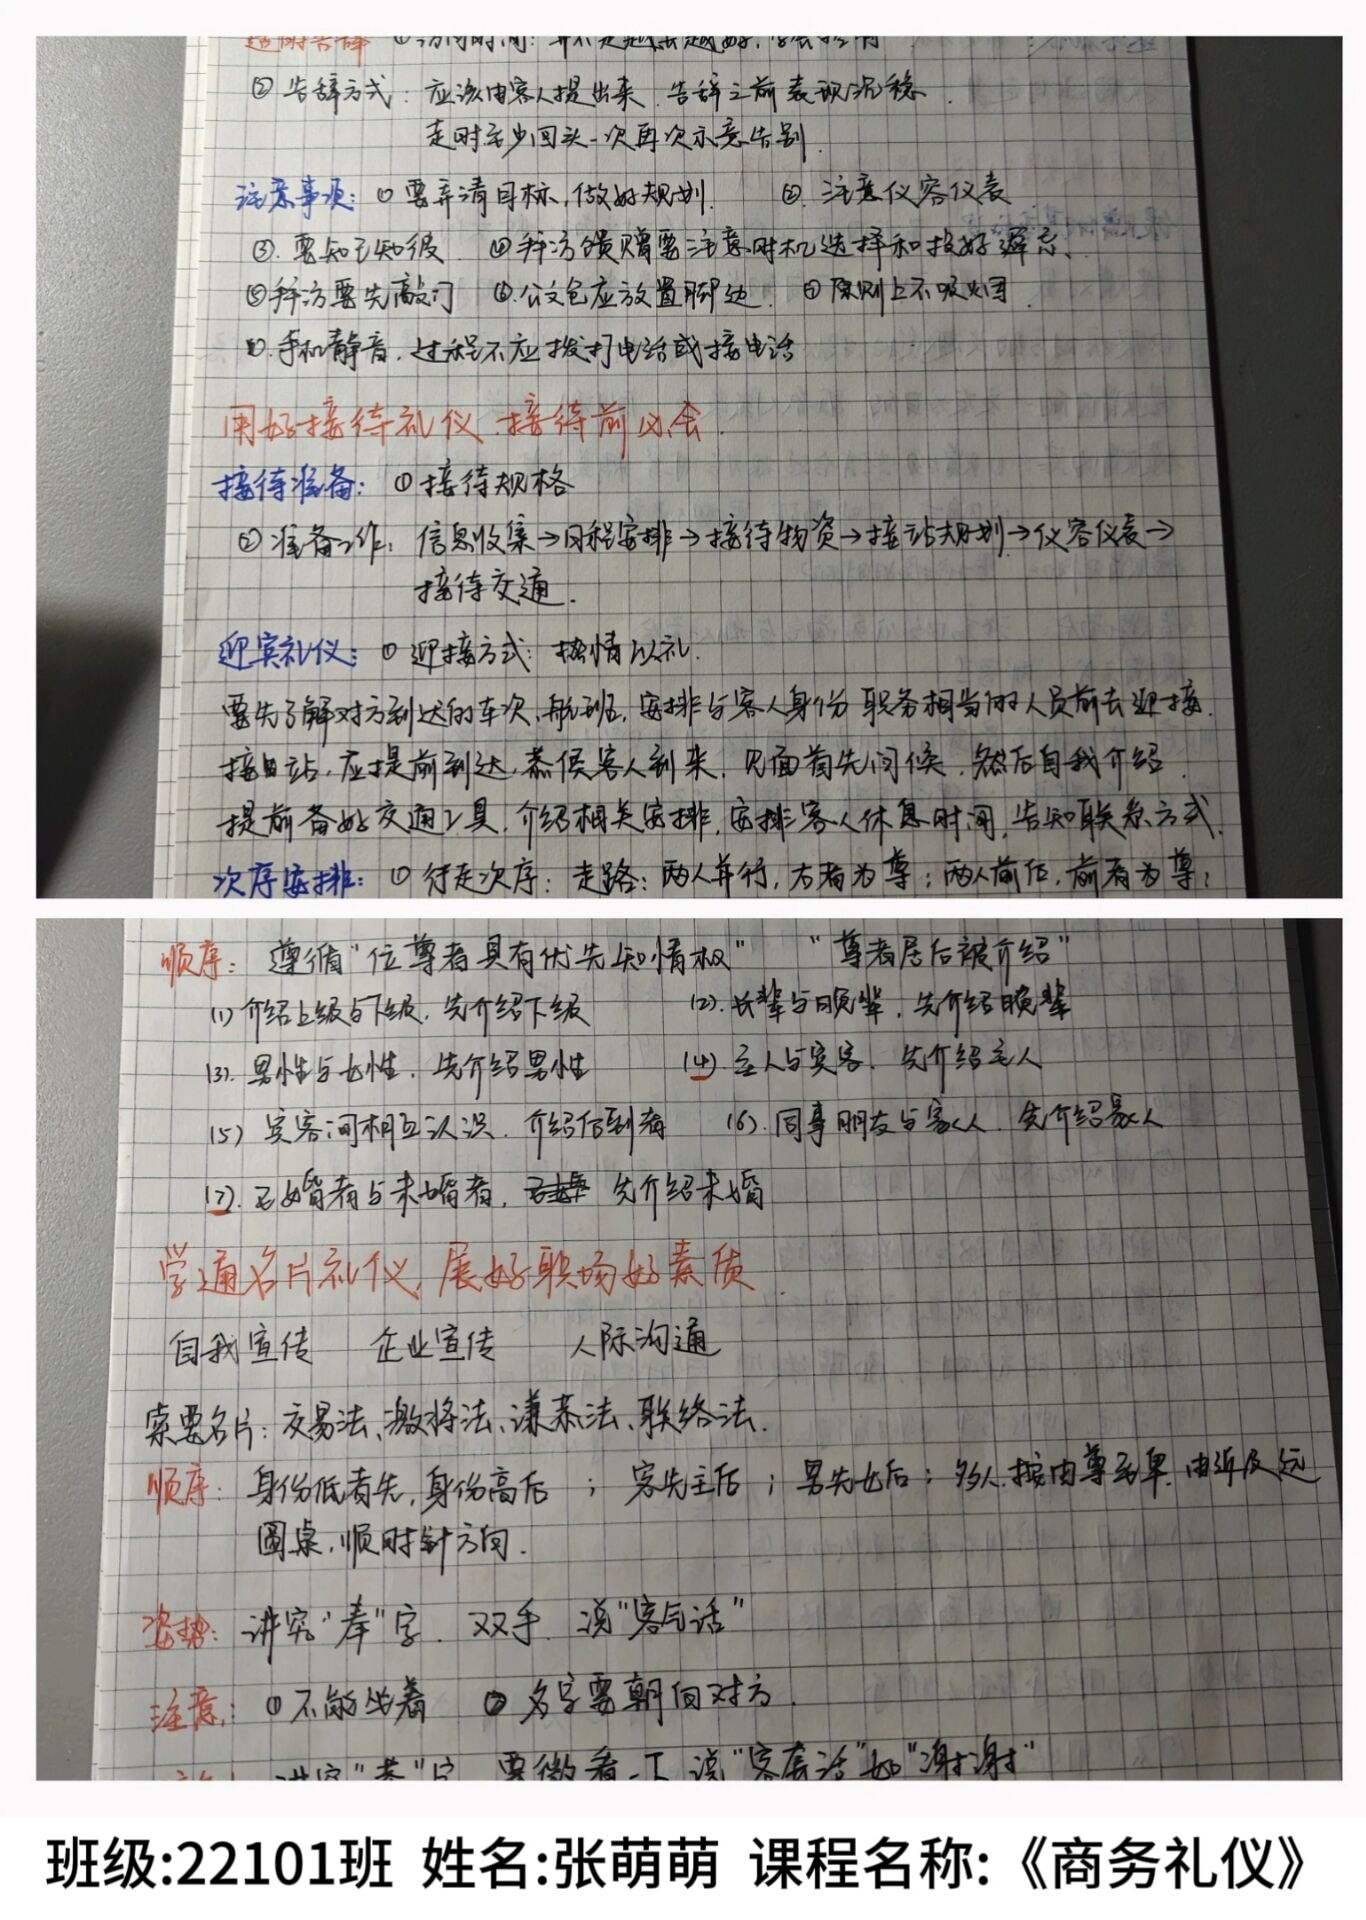 适时告辞 ①访问时间：并不是越长越好，
②告辞方式：应该由客人提出来，告辞之前表现沉稳，
走时至少回头一次再次示意告别
注意事项：①要弄清目标，做好规划. ②.注意仪容仪表
③.要知己知彼 ④拜访馈赠要注意时机选择和投好避忌、
⑤拜访要先敲门 ⑥.公文包应放置脚边. ⑦原则上不吸烟.
⑧.手机静音，过程不应拨打电话或接电话
用好接待礼仪，接待前必会.
接待准备：①接待规格
②准备工作：信息收集→日程安排→接待物资→接站规划→仪容仪表→
接待交通.
迎宾礼仪：①迎接方式：热情以礼.
要先了解对方到达的车次、航班，安排与客人身份职务相当的人员前去迎接.
接站，应提前到达，恭候客人到来，见面首先问候，然后自我介绍.
提前备好交通工具，介绍相关安排，安排客人休息时间，告知联系方式.
次序安排：①行走次序：走路：两人并行，右者为尊；两人前后，前者为尊；
顺序：遵循"位尊者具有优先知情权" "尊者居后被介绍"
(1)介绍上级与下级，先介绍下级 (2).长辈与晚辈，先介绍晚辈
(3).男性与女性，先介绍男性 (4).主人与宾客，先介绍主人
(5)宾客间相互认识，介绍后到者 (6).同事朋友与家人，先介绍家人
(7).已婚者与未婚者，先介绍未婚
学通名片礼仪，展好职场好素质.
自我宣传 企业宣传 人际沟通
索要名片：交易法、激将法、谦恭法、联络法.
顺序：身份低者先，身份高后；客先主后；男先女后；多人，按由尊至卑，由近及远
圆桌，顺时针方向.
姿势：讲究"奉"字．双手．说"客气话"
注意：①不能坐着 ②名字要朝向对方.
讲究"恭"字 要微看一下 说"客套话"如"谢谢"
班级:22101班 姓名:张萌萌 课程名称:《商务礼仪》